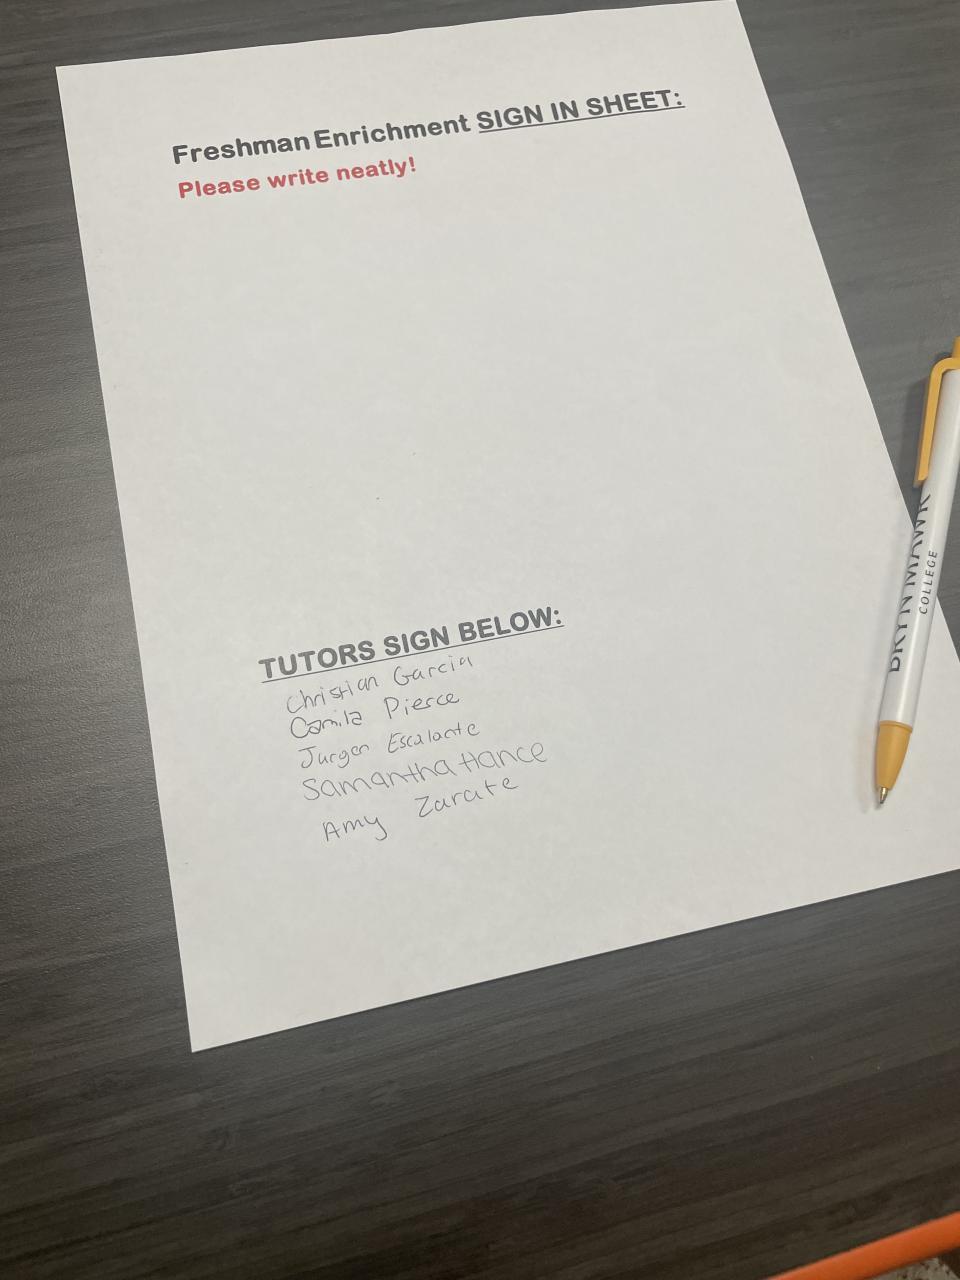 Freshman Enrichment SIGN IN SHEET:
Please write neatly!
TUTORS SIGN BELOW:
Christian Garcia
Camila Pierce
Jurgen Escalante
Samantha Hance
Amy Zarate
BRYN MAWR
COLLEGE